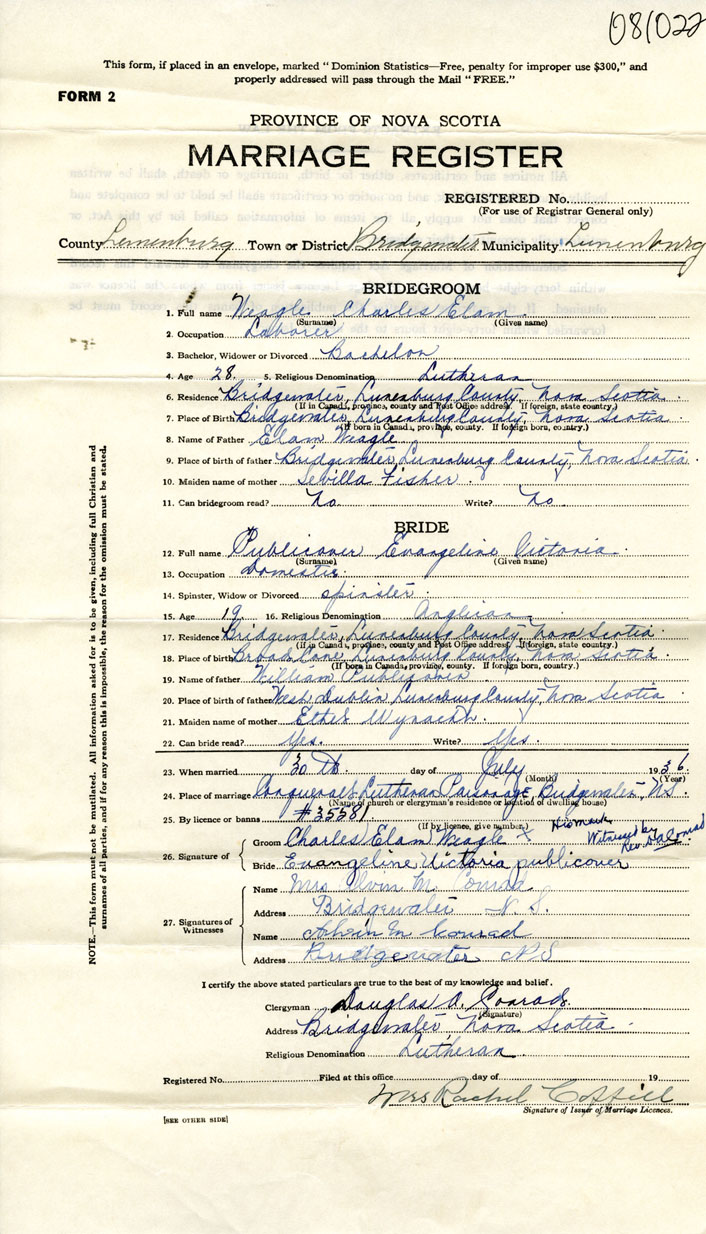 081022
This form, if placed in an envelope, marked "Dominion Statistics—Free, penalty for improper use $300," and
properly addressed will pass through the Mail "FREE."
FORM 2
PROVINCE OF NOVA SCOTIA
MARRIAGE REGISTER
REGISTERED No.
(For use of Registrar General only)
County Lunenburg Town or District Bridgewater Municipality Lunenburg
BRIDEGROOM
1. Full name Weagle Charles Elam
(Surname) (Given name)
2. Occupation Laborer
3. Bachelor, Widower or Divorced Bachelor
4. Age 28. 5. Religious Denomination Lutheran
6. Residence Bridgewater, Lunenburg County, Nova Scotia
(If in Canada, province, county and Post Office address. If foreign, state country.)
7. Place of Birth Bridgewater, Lunenburg County, Nova Scotia
(If born in Canada, province, county. If foreign born, country.)
8. Name of Father Elam Weagle
9. Place of birth of father Bridgewater, Lunenburg County, Nova Scotia
10. Maiden name of mother Sevilla Fisher
11. Can bridegroom read? No Write? No
BRIDE
12. Full name Publicover Evangeline Victoria
(Surname) (Given name)
13. Occupation Domestic
14. Spinster, Widow or Divorced spinster
15. Age 19 16. Religious Denomination Anglican
17. Residence Bridgewater, Lunenburg County, Nova Scotia
(If in Canada, province, county and Post Office address. If foreign, state country.)
18. Place of birth Broad Cove Lunenburg County, Nova Scotia
(If born in Canada, province, county. If foreign born, country.)
19. Name of father William Publicover
20. Place of birth of father West Dublin, Lunenburg County, Nova Scotia
21. Maiden name of mother Ethel Wynacht
22. Can bride read? Yes. Write? Yes.
23. When married 30th day of July 1936
(Month) (Year)
24. Place of marriage Conquerall Lutheran Parsonage, Bridgewater, N.S.
(Name of church or clergyman's residence or location of dwelling house)
25. By licence or banns #35581
(If by licence, give number.)
26. Signature of
Groom Charles Elam Weagle X His mark
Witnessed by
Rev. D.A. Conrad
Bride Evangeline Victoria publicover
27. Signatures of Witnesses
Name Mrs Alvin M. Conrad
Address Bridgewater N.S.
Name Alvin M Conrad
Address Bridgewater N S
I certify the above stated particulars are true to the best of my knowledge and belief.
Clergyman Douglas A. Conrad.
(Signature)
Address Bridgewater Nova Scotia
Religious Denomination Lutheran
Registered No. Filed at this office day of 19
Mrs Rachel Coffill
Signature of Issuer of Marriage Licences.
[SEE OTHER SIDE]
NOTE.—This form must not be mutilated. All information asked for is to be given, including full Christian and
surnames of all parties, and if for any reason this is impossible, the reason for the omission must be stated.